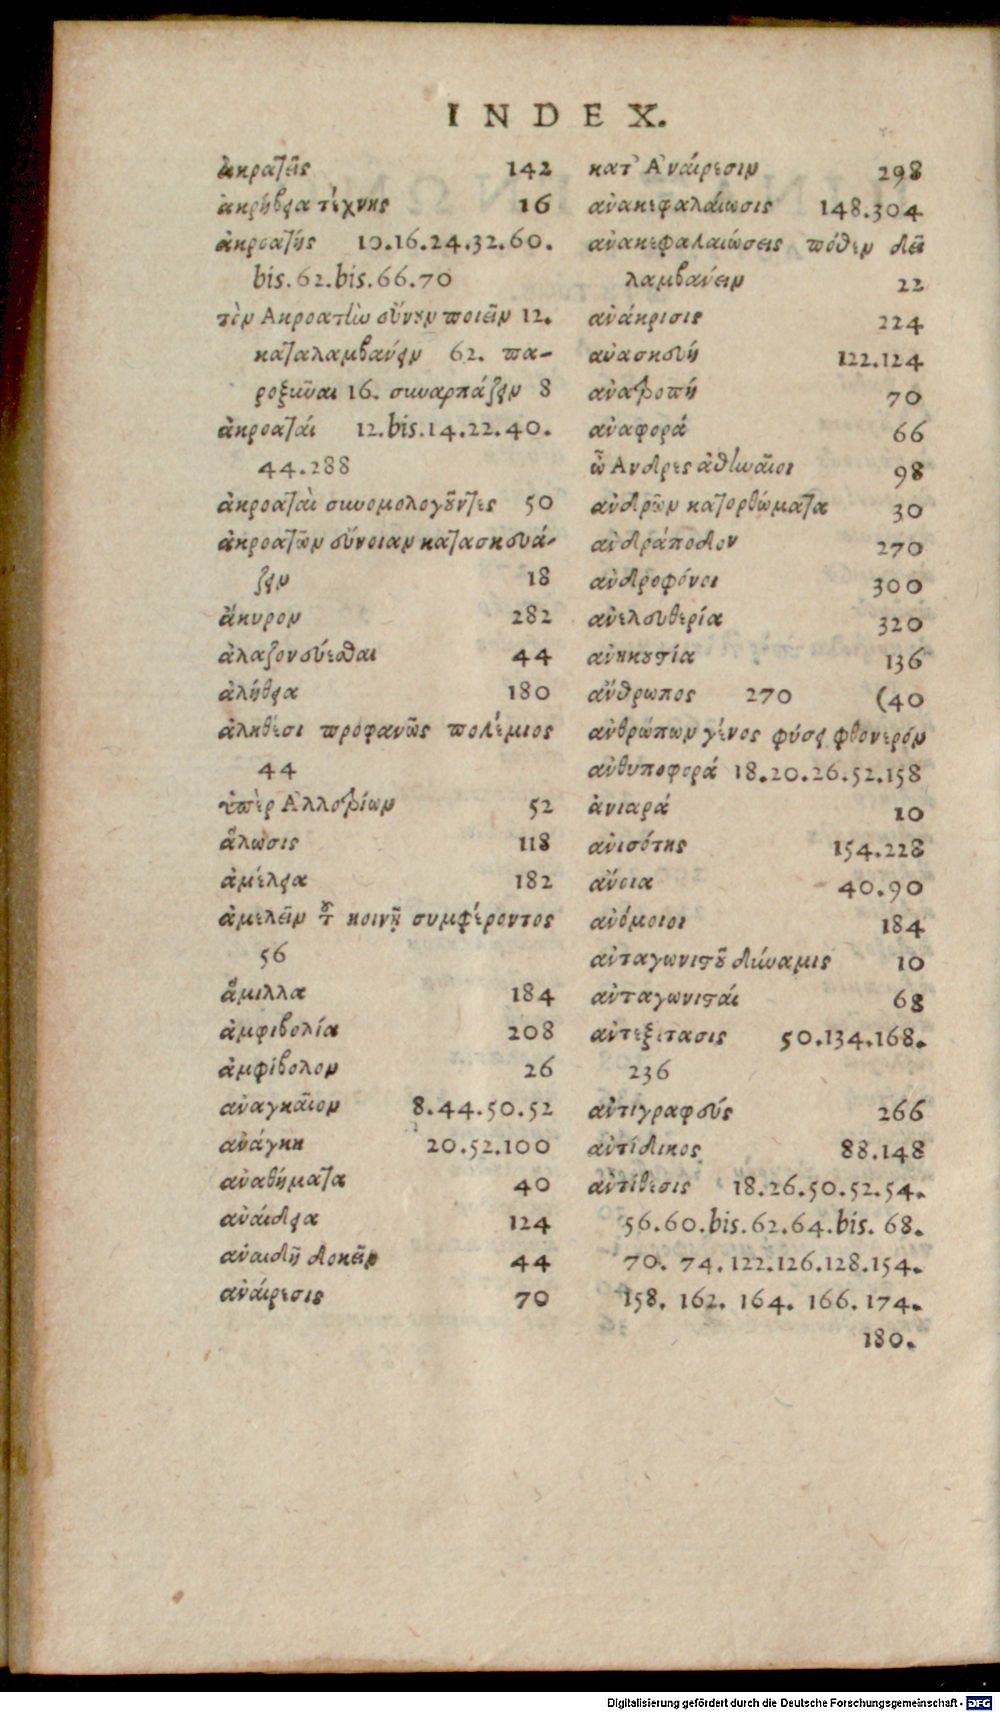 INDEX.
ἀκρατεῖς 142
ἀκρίβεια τέχνης 16
ἀκροατής 10.16.24.32.60.
bis.62.bis.66.70
τὸν Ακροατὴν εὔνουν ποιεῖν 12.
καταλαμβάνειν 62. πα-
ροξῦναι 16. συναρπάζειν 8
ἀκροαταί 12.bis.14.22.40.
44.288
ἀκροαταὶ συνομολογοῦντες 50
ἀκροατῶν εὔνοιαν κατασκευά-
ζειν 18
ἄκυρον 282
ἀλαζονεύεσθαι 44
ἀλήθεια 180
ἀληθέσι προφανῶς πολέμιος
44
ὑπὲρ Αλλοτρίων 52
ἅλωσις 118
ἀμέλεια 182
ἀμελεῖν τοῦ κοινῇ συμφέροντος
56
ἅμιλλα 184
ἀμφιβολία 208
ἀμφίβολον 26
ἀναγκαῖον 8.44.50.52
ἀνάγκη 20.52.100
ἀναθήματα 40
ἀναίδεια 124
ἀναιδῆ δοκεῖν 44
ἀναίρεσις 70
κατ᾽ Αναίρεσιν 298
ἀνακεφαλαίωσις 148.304
ἀνακεφαλαιώσεις πόθεν δεῖ
λαμβάνειν 22
ἀνάκρισις 224
ἀνασκευή 122.124
ἀνατροπή 70
ἀναφορά 66
ὦ Ανδρες ἀθηναῖοι 98
ἀνδρῶν κατορθώματα 30
ἀνδράποδον 270
ἀνδροφόνοι 300
ἀνελευθερία 320
ἀνηκουστία 136
ἄνθρωπος 270 (40
ἀνθρώπων γένος φύσει φθονερόν
ἀνθυποφορά 18.20.26.52.158
ἀνιαρά 10
ἀνισότης 154.228
ἄνοια 40.90
ἀνόμοιοι 184
ἀνταγωνιστοῦ δύναμις 10
ἀνταγωνισταί 68
ἀντεξέτασις 50.134.168.
236
ἀντιγραφεύς 266
ἀντίδικος 88.148
ἀντίθεσις 18.26.50.52.54.
56.60.bis.62.64.bis. 68.
70. 74.122.126.128.154.
158. 162. 164. 166. 174.
180.
Digitalisierung gefördert durch die Deutsche Forschungsgemeinschaft - DFG